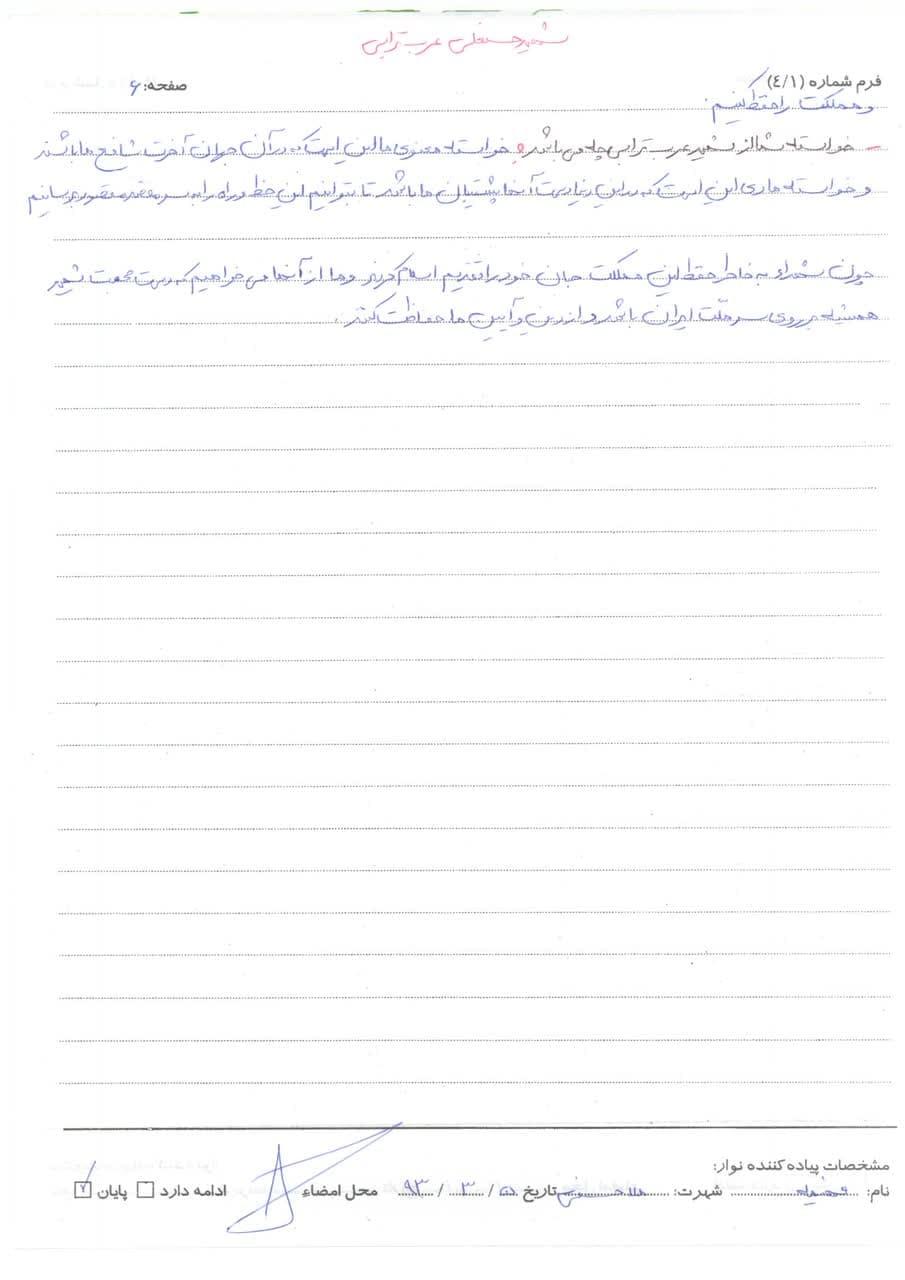 شهید حسنعلی عرب ترابی
فرم شماره (٤/١)
صفحه: ۶
و مملکت را حفظ کنیم.
- خواسته شما از شهید عرب ترابی چه می باشد؟ خواسته معنوی ما این است که در آن جهان آخرت شافع ما باشند
و خواسته مادی این است که در این دنیا دست آنها پشتیبان ما باشد تا بتوانیم این خط و راه را به سر مقصد مقصود برسانیم
چون شهداء به خاطر حفظ این مملکت جان خود را تقدیم اسلام کردند و ما از آنها می خواهیم که دست محبت شهید
همیشه بر روی سر ملّت ایران باشد و از دین و آیین ما حفاظت کنند.
مشخصات پیاده کننده نوار:
نام: شهرت: تاریخ / ۳ / ۹۳ محل امضاء ادامه دارد پایان